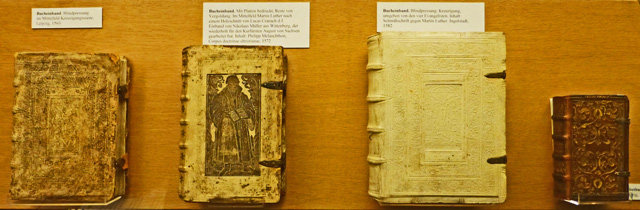 Bucheinband. Blindpressung;
im Mittelfeld Kreuzigungsszene.
Leipzig, 1561
Bucheinband. Mit Platten bedruckt; Reste von
Vergoldung. Im Mittelfeld Martin Luther nach
einem Holzschnitt von Lucas Cranach d.J.
Einband von Nikolaus Müller aus Wittenberg, der
wiederholt für den Kurfürsten August von Sachsen
gearbeitet hat. Inhalt: Philipp Melanchthon,
Corpus doctrinae christianae. 1572
Bucheinband. Blindpressung: Kreuzigung,
umgeben von den vier Evangelisten. Inhalt:
Schmähschrift gegen Martin Luther. Ingolstadt,
1582